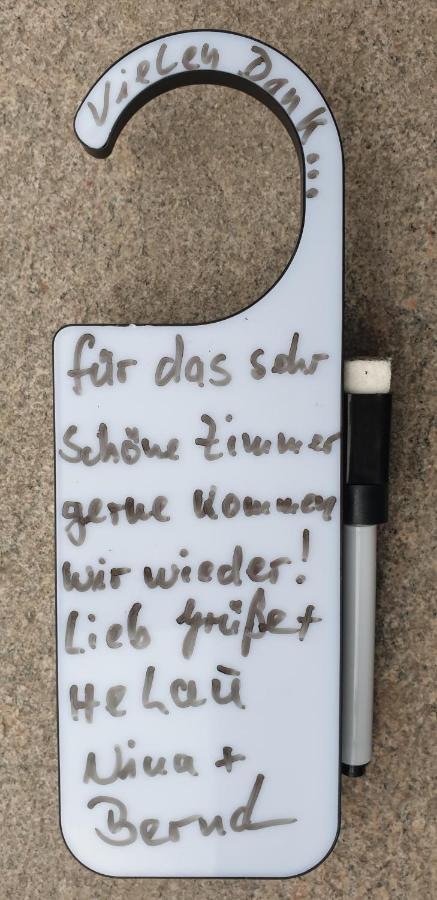 Vielen Dank...
für das sehr
schöne Zimmer
gerne kommen
wir wieder!
Lieb Grüße +
Helau
Nina +
Bernd